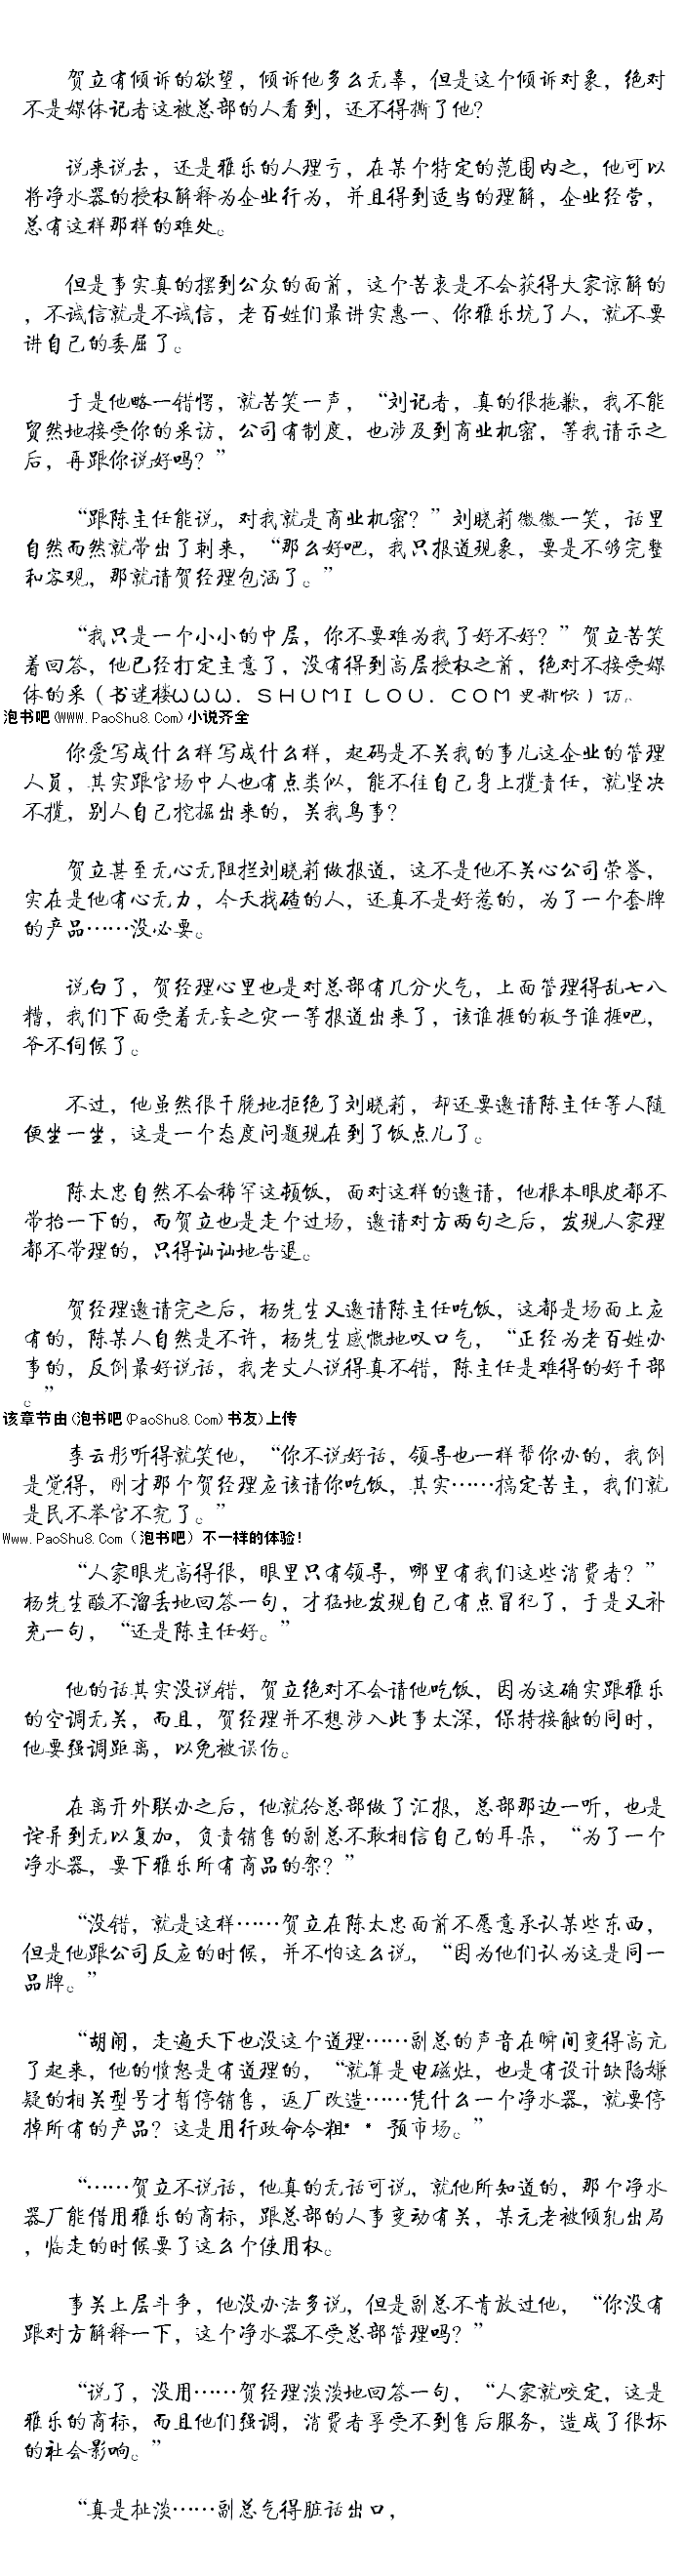 贺立有倾诉的欲望，倾诉他多么无辜，但是这个倾诉对象，绝对
不是媒体记者这被总部的人看到，还不得撕了他？
说来说去，还是雅乐的人理亏，在某个特定的范围内之，他可以
将净水器的授权解释为企业行为，并且得到适当的理解，企业经营，
总有这样那样的难处。
但是事实真的摆到公众的面前，这个苦衷是不会获得大家谅解的
，不诚信就是不诚信，老百姓们最讲实惠一、你雅乐坑了人，就不要
讲自己的委屈了。
于是他略一错愕，就苦笑一声，“刘记者，真的很抱歉，我不能
贸然地接受你的采访，公司有制度，也涉及到商业机密，等我请示之
后，再跟你说好吗？”
“跟陈主任能说，对我就是商业机密？”刘晓莉微微一笑，话里
自然而然就带出了刺来，“那么好吧，我只报道现象，要是不够完整
和客观，那就请贺经理包涵了。”
“我只是一个小小的中层，你不要难为我了好不好？”贺立苦笑
着回答，他已经打定主意了，没有得到高层授权之前，绝对不接受媒
体的采（书迷楼ＷＷＷ．ＳＨＵＭＩＬＯＵ．ＣＯＭ更新快）访。
泡书吧(WWW.PaoShu8.Com)小说齐全
你爱写成什么样写成什么样，起码是不关我的事儿这企业的管理
人员，其实跟官场中人也有点类似，能不往自己身上揽责任，就坚决
不揽，别人自己挖掘出来的，关我鸟事？
贺立甚至无心无阻拦刘晓莉做报道，这不是他不关心公司荣誉，
实在是他有心无力，今天找碴的人，还真不是好惹的，为了一个套牌
的产品……没必要。
说白了，贺经理心里也是对总部有几分火气，上面管理得乱七八
糟，我们下面受着无妄之灾一等报道出来了，该谁捱的板子谁捱吧，
爷不伺候了。
不过，他虽然很干脆地拒绝了刘晓莉，却还要邀请陈主任等人随
便坐一坐，这是一个态度问题现在到了饭点儿了。
陈太忠自然不会稀罕这顿饭，面对这样的邀请，他根本眼皮都不
带抬一下的，而贺立也是走个过场，邀请对方两句之后，发现人家理
都不带理的，只得讪讪地告退。
贺经理邀请完之后，杨先生又邀请陈主任吃饭，这都是场面上应
有的，陈某人自然是不许，杨先生感慨地叹口气，“正经为老百姓办
事的，反倒最好说话，我老丈人说得真不错，陈主任是难得的好干部
。”
该章节由(泡书吧(PaoShu8.Com)书友)上传
李云彤听得就笑他，“你不说好话，领导也一样帮你办的，我倒
是觉得，刚才那个贺经理应该请你吃饭，其实……搞定苦主，我们就
是民不举官不究了。”
Www.PaoShu8.Com（泡书吧）不一样的体验！
“人家眼光高得很，眼里只有领导，哪里有我们这些消费者？”
杨先生酸不溜丢地回答一句，才猛地发现自己有点冒犯了，于是又补
充一句，“还是陈主任好。”
他的话其实没说错，贺立绝对不会请他吃饭，因为这确实跟雅乐
的空调无关，而且，贺经理并不想涉入此事太深，保持接触的同时，
他要强调距离，以免被误伤。
在离开外联办之后，他就给总部做了汇报，总部那边一听，也是
诧异到无以复加，负责销售的副总不敢相信自己的耳朵，“为了一个
净水器，要下雅乐所有商品的架？”
“没错，就是这样……贺立在陈太忠面前不愿意承认某些东西，
但是他跟公司反应的时候，并不怕这么说，“因为他们认为这是同一
品牌。”
“胡闹，走遍天下也没这个道理……副总的声音在瞬间变得高亢
了起来，他的愤怒是有道理的，“就算是电磁灶，也是有设计缺陷嫌
疑的相关型号才暂停销售，返厂改造……凭什么一个净水器，就要停
掉所有的产品？这是用行政命令粗**预市场。”
“……贺立不说话，他真的无话可说，就他所知道的，那个净水
器厂能借用雅乐的商标，跟总部的人事变动有关，某元老被倾轧出局
，临走的时候要了这么个使用权。
事关上层斗争，他没办法多说，但是副总不肯放过他，“你没有
跟对方解释一下，这个净水器不受总部管理吗？”
“说了，没用……贺经理淡淡地回答一句，“人家就咬定，这是
雅乐的商标，而且他们强调，消费者享受不到售后服务，造成了很坏
的社会影响。”
“真是扯淡……副总气得脏话出口，